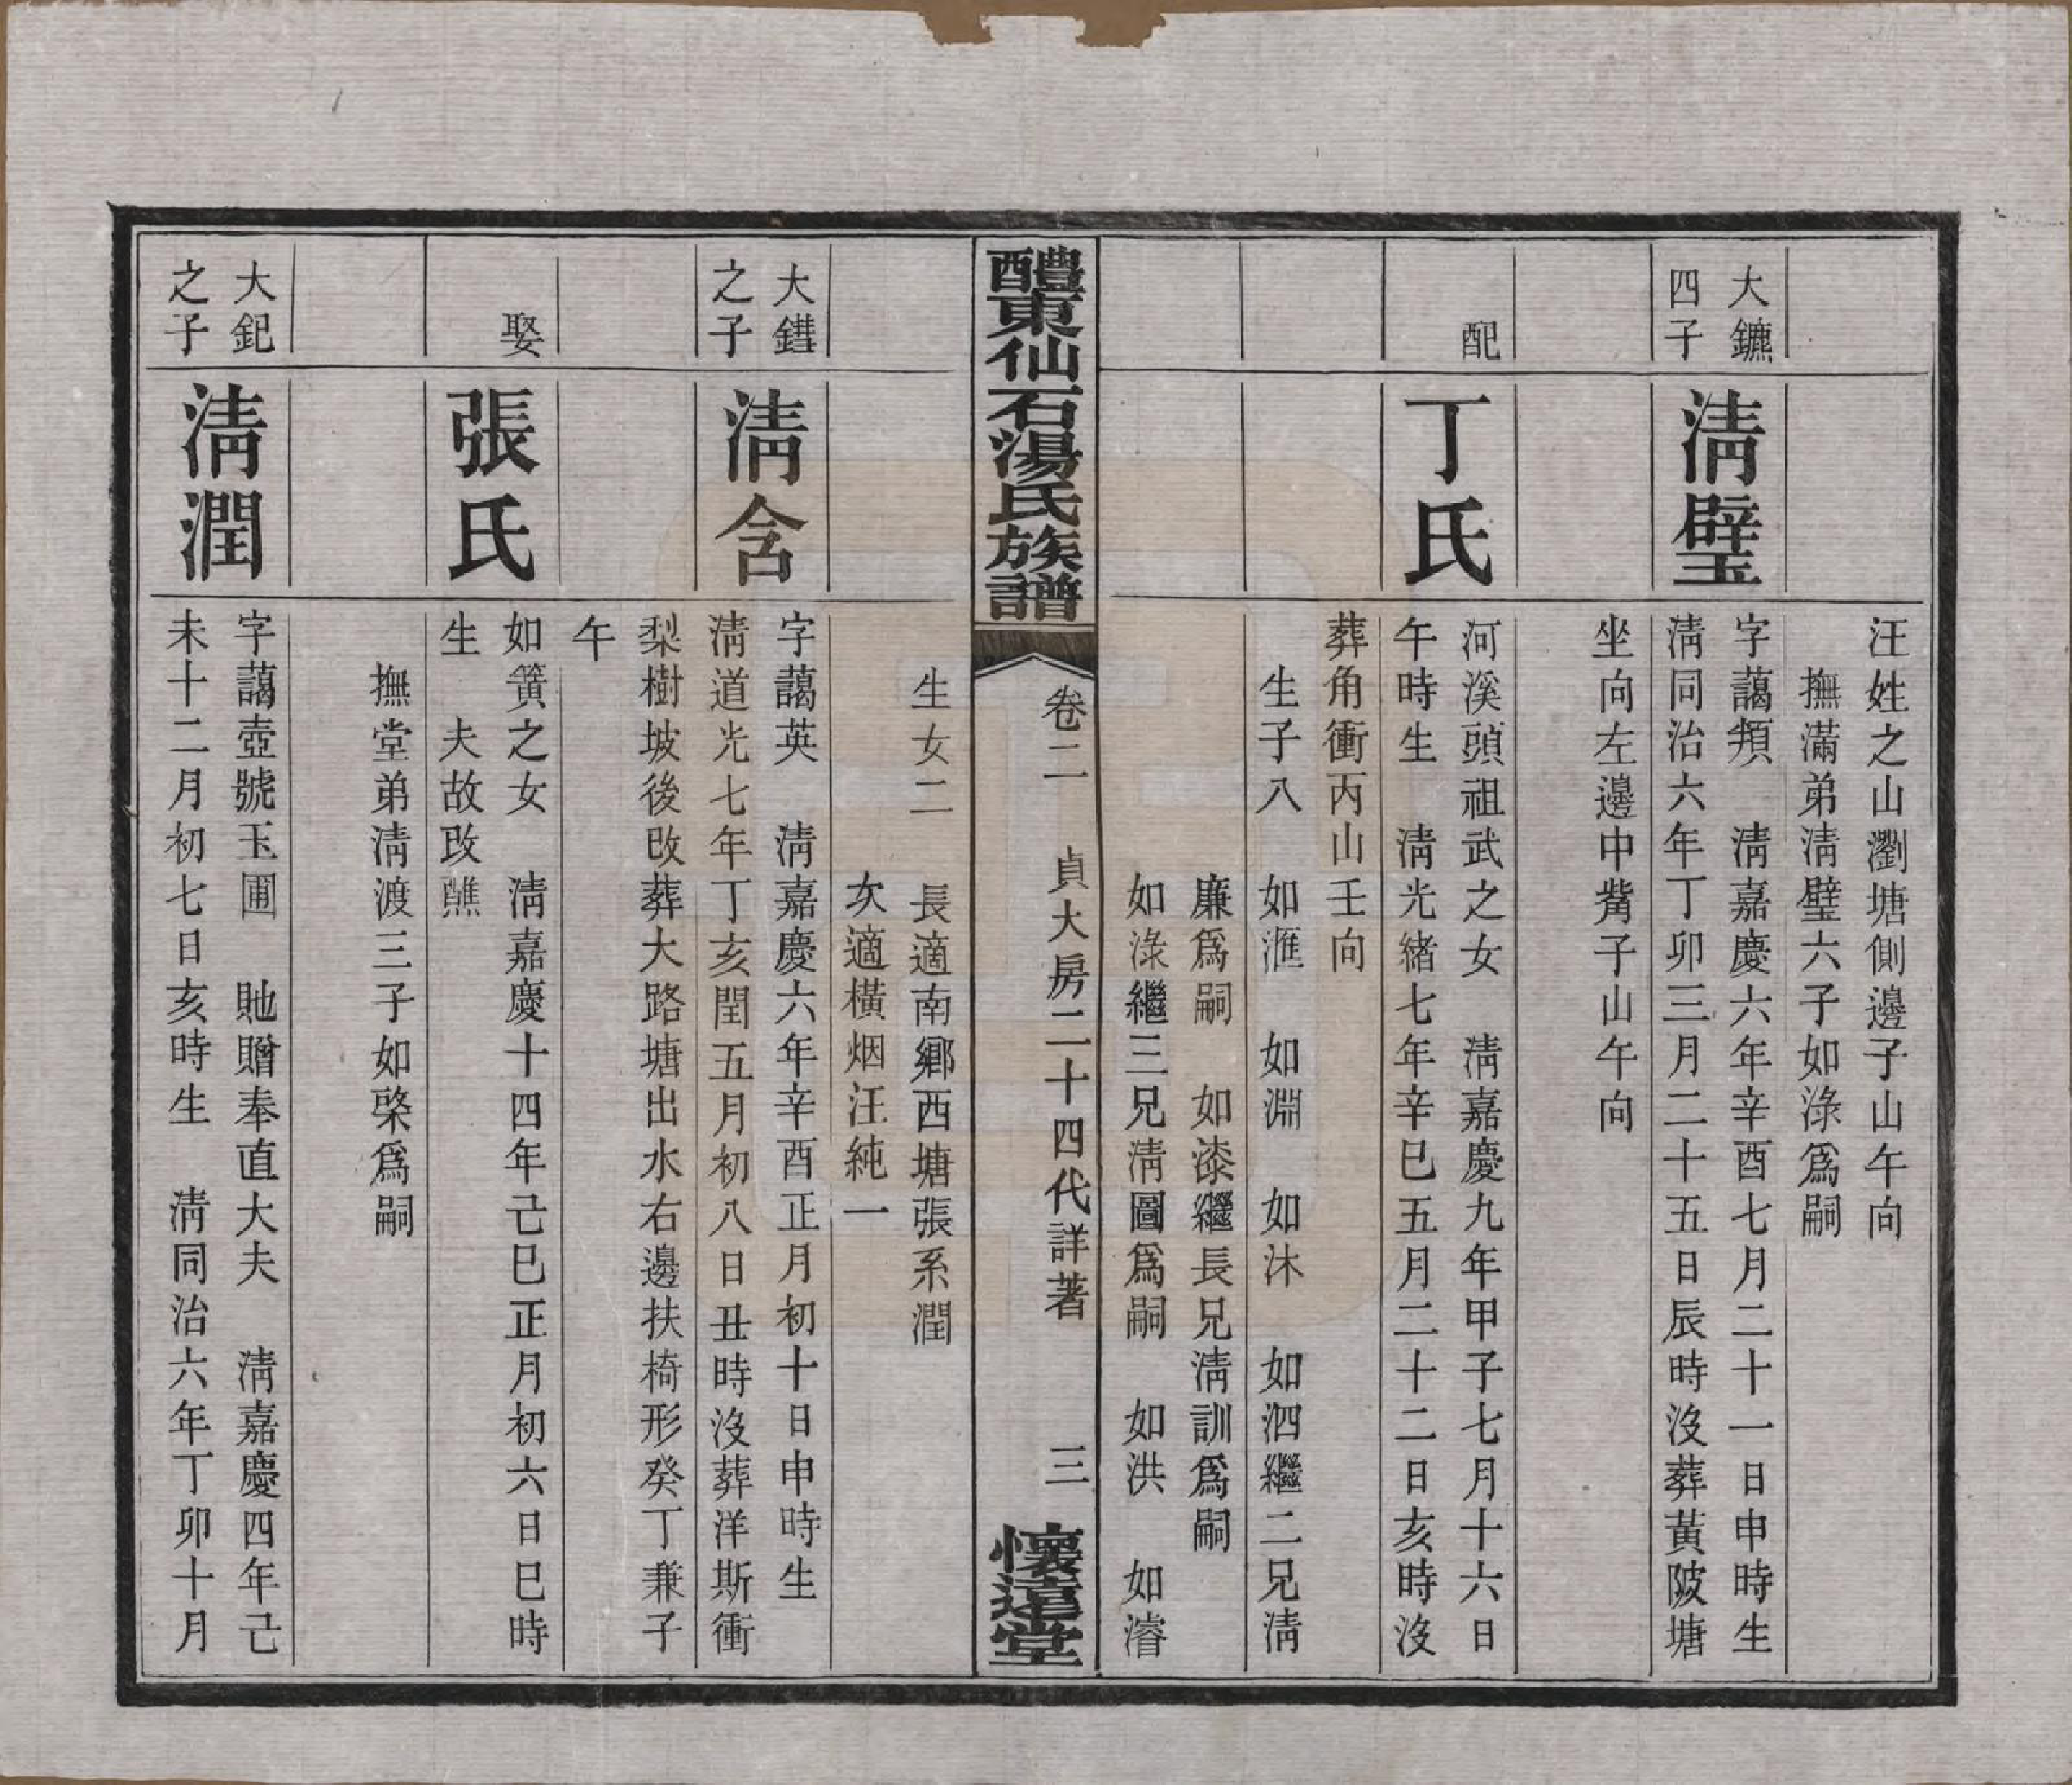 汪姓之山瀏塘側邊子山午向
撫滿弟淸璧六子如淥爲嗣
大鑣
四子
淸璧
字藹頖　淸嘉慶六年辛酉七月二十一日申時生
淸同治六年丁卯三月二十五日辰時沒葬黃陂塘
坐向左邊中觜子山午向
配
丁氏
河溪頭祖武之女　淸嘉慶九年甲子七月十六日
午時生　淸光緖七年辛巳五月二十二日亥時沒
葬角衝丙山壬向
生子八　如滙　如淵　如沐　如泗繼二兄淸
廉爲嗣　如漆繼長兄淸訓爲嗣
如淥繼三兄淸圖爲嗣　如洪　如濬
醴東仙石湯氏族譜
卷二　貞大房二十四代詳著　三
懷遠堂
生女二　長適南鄕西塘張系潤
次適橫烟汪純一
大鐟
之子
淸含
字藹英　淸嘉慶六年辛酉正月初十日申時生
淸道光七年丁亥閏五月初八日丑時沒葬洋斯衝
梨樹坡後改葬大路塘出水右邊扶椅形癸丁兼子
午
娶
張氏
如簧之女　淸嘉慶十四年己巳正月初六日巳時
生　夫故改醮
撫堂弟淸渡三子如棨爲嗣
大鈀
之子
淸潤
字藹壺號玉圃　貤贈奉直大夫　淸嘉慶四年己
未十二月初七日亥時生　淸同治六年丁卯十月